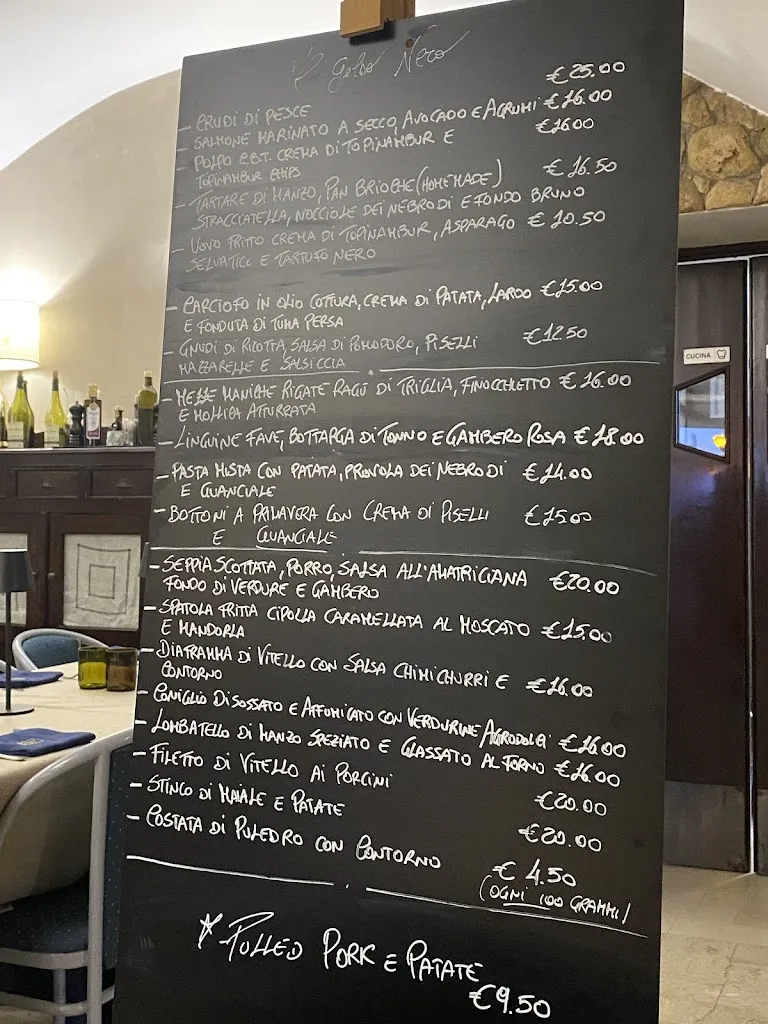 Gelso Nero
- CRUDI DI PESCE €25.00
- SALMONE MARINATO A SECCO, AVOCADO E AGRUMI €16.00
- POLPO C.B.T. CREMA DI TOPINAMBUR E €16.00
TOPINAMBUR CHIPS
- TARTARE DI MANZO, PAN BRIOCHE (HOMEMADE) €16.50
STRACCIATELLA, NOCCIOLE DEI NEBRODI E FONDO BRUNO
- UOVO FRITTO CREMA DI TOPINAMBUR, ASPARAGO €10.50
SELVATICO E TARTUFO NERO
- CARCIOFO IN OLIO COTTURA, CREMA DI PATATA, LARDO €15.00
E FONDUTA DI TUMA PERSA
- GNUDI DI RICOTTA, SALSA DI POMODORO, PISELLI €12.50
MAZZARELLE E SALSICCIA
- MEZZE MANICHE RIGATE RAGÙ DI TRIGLIA, FINOCCHIETTO €16.00
E MOLLICA ATTURRATA
- LINGUINE FAVE, BOTTARGA DI TONNO E GAMBERO ROSA €18.00
- PASTA MISTA CON PATATA, PROVOLA DEI NEBRODI €14.00
E GUANCIALE
- BOTTONI A PRIMAVERA CON CREMA DI PISELLI €15.00
E GUANCIALE
- SEPPIA SCOTTATA, PORRO, SALSA ALL'AMATRICIANA €20.00
FONDO DI VERDURE E GAMBERO
- SPATOLA FRITTA CIPOLLA CARAMELLATA AL MOSCATO €15.00
E MANDORLA
- DIAFRAMMA DI VITELLO CON SALSA CHIMICHURRI E €16.00
CONTORNO
- CONIGLIO DISOSSATO E AFFUMICATO CON VERDURINE AGRODOLCI €16.00
- LOMBATELLO DI MANZO SPEZIATO E GLASSATO AL FORNO €16.00
- FILETTO DI VITELLO AI PORCINI €20.00
- STINCO DI MAIALE E PATATE €20.00
- COSTATA DI PULEDRO CON CONTORNO €4.50
(OGNI 100 GRAMMI)
* PULLED PORK E PATATE
€9.50
CUCINA